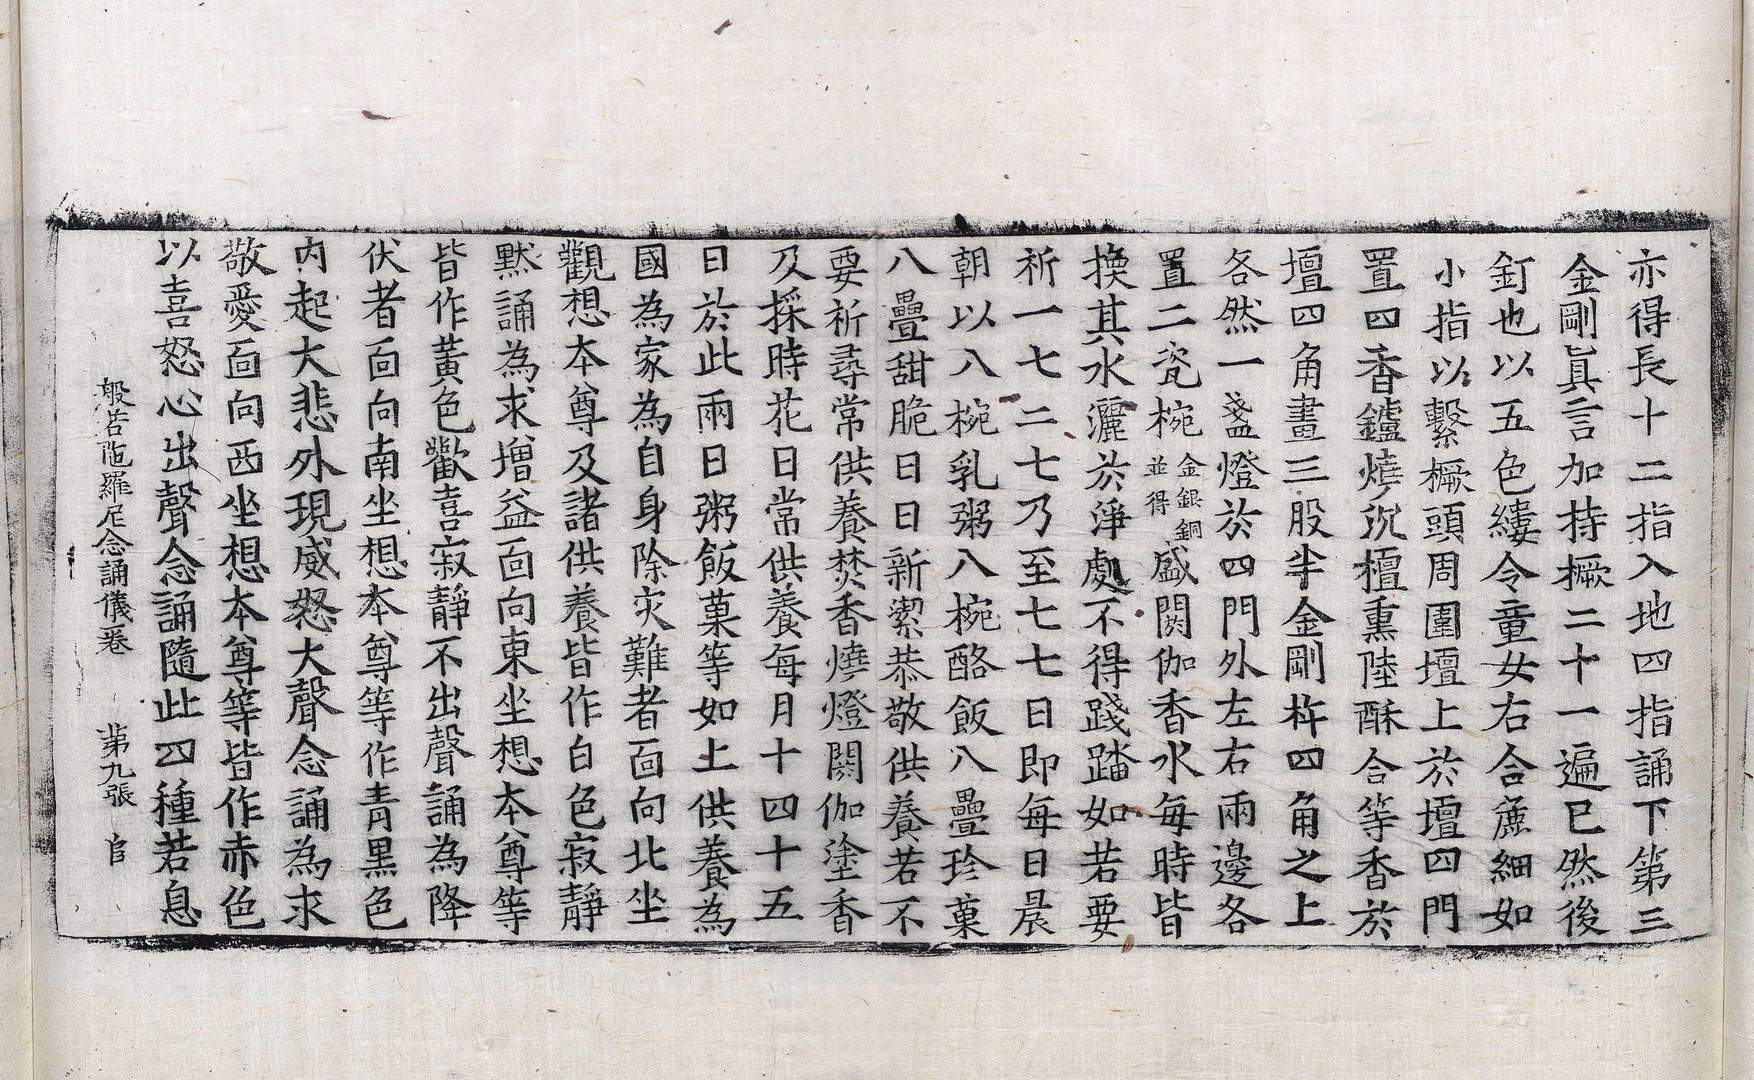 亦得長十二指入地四指誦下第三
金剛眞言加持橛二十一遍已然後
釘也以五色縷令童女右合麁細如
小指以繫橛頭周圍壇上於壇四門
置四香鑪燒沉檀熏陸酥合等香於
壇四角畫三股半金剛杵四角之上
各然一盞燈於四門外左右兩邊各
置二瓷椀金銀銅並得盛閼伽香水每時皆
換其水灑於淨處不得踐踏如若要
祈一七二七乃至七七日即每日晨
朝以八椀乳粥八椀酪飯八疊珍菓
八疊甜脆日日新潔恭敬供養若不
要祈尋常供養焚香燒燈閼伽塗香
及採時花日常供養每月十四十五
日於此兩日粥飯菓等如上供養為
國為家為自身除灾難者面向北坐
觀想本尊及諸供養皆作白色寂靜
默誦為求增益面向東坐想本尊等
皆作黃色歡喜寂靜不出聲誦為降
伏者面向南坐想本尊等作青黑色
內起大悲外現威怒大聲念誦為求
敬愛面向西坐想本尊等皆作赤色
以喜怒心出聲念誦隨此四種若息
般若陁羅尼念誦儀一卷 第九張 官